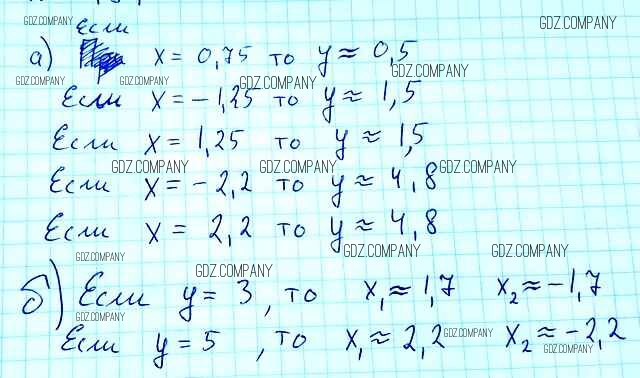 Если GDZ.COMPANY
а) x = 0,75 то y ≈ 0,5
GDZ.COMPANY GDZ.COMPANY GDZ.COMPANY GDZ.COMPANY
Если x = -1,25 то y ≈ 1,5
Если x = 1,25 то y ≈ 1,5
GDZ.COMPANY GDZ.COMPANY GDZ.COMPANY
Если x = -2,2 то y ≈ 4,8
Если x = 2,2 то y ≈ 4,8
GDZ.COMPANY GDZ.COMPANY GDZ.COMPANY
GDZ.COMPANY
б) Если y = 3, то x₁ ≈ 1,7 x₂ ≈ -1,7
GDZ.COMPANY
Если y = 5, то x₁ ≈ 2,2 GDZ.COMPANY x₂ ≈ -2,2
GDZ.COMPANY